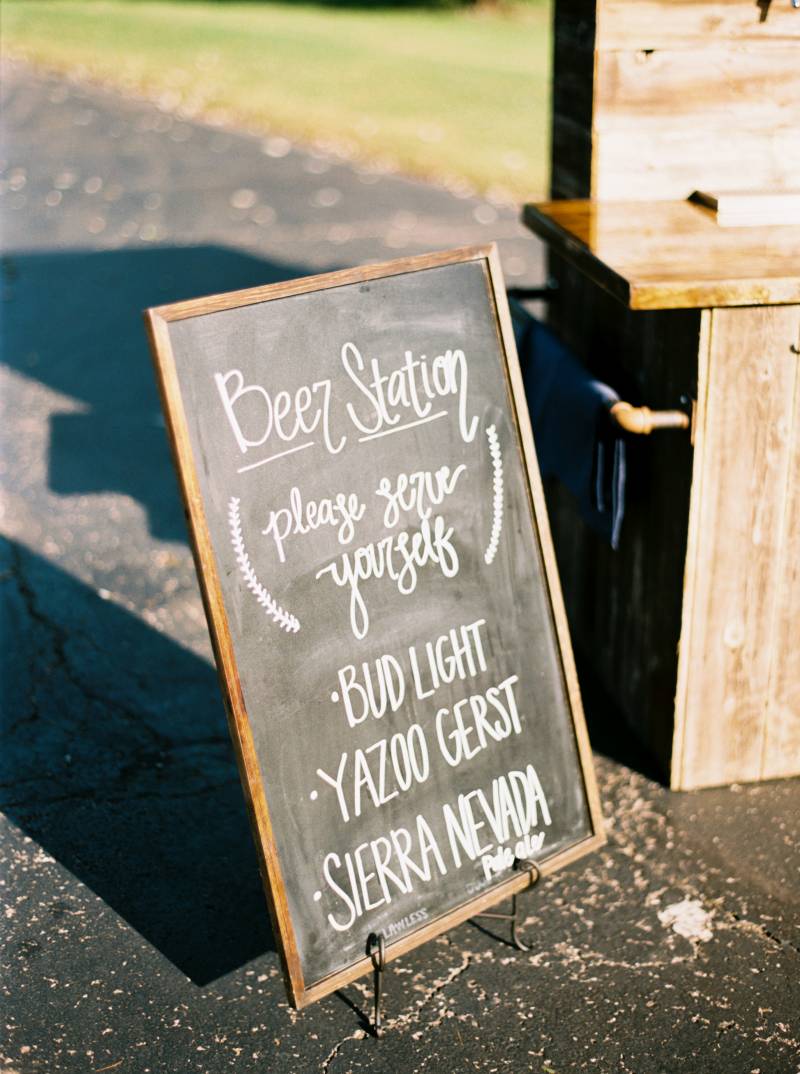 Beer Station
please serve
yourself
·BUD LIGHT
·YAZOO GERST
·SIERRA NEVADA
Pale ale
LAWLESS